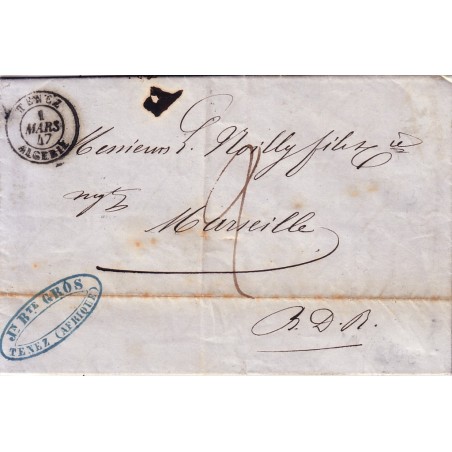 TENEZ
1
MARS
47
ALGERIE
Messieurs L. Noilly fils & Cie
Marseille
2
B. D. R.
JN BTE GROS
TENEZ (AFRIQUE)